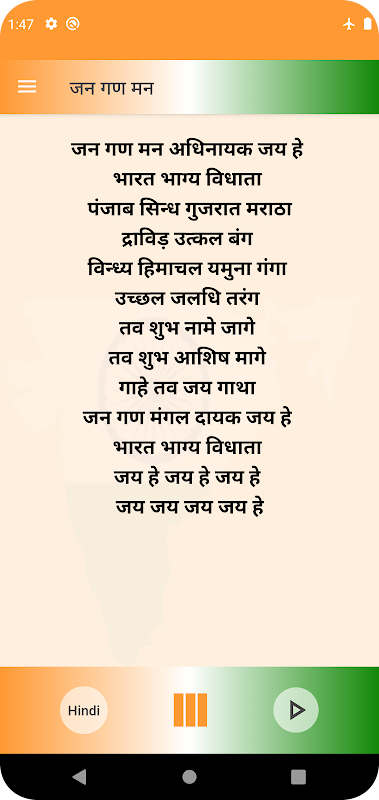 1:47
जन गण मन
जन गण मन अधिनायक जय हे
भारत भाग्य विधाता
पंजाब सिन्ध गुजरात मराठा
द्राविड़ उत्कल बंग
विन्ध्य हिमाचल यमुना गंगा
उच्छल जलधि तरंग
तव शुभ नामे जागे
तव शुभ आशिष मागे
गाहे तव जय गाथा
जन गण मंगल दायक जय हे
भारत भाग्य विधाता
जय हे जय हे जय हे
जय जय जय जय हे
Hindi